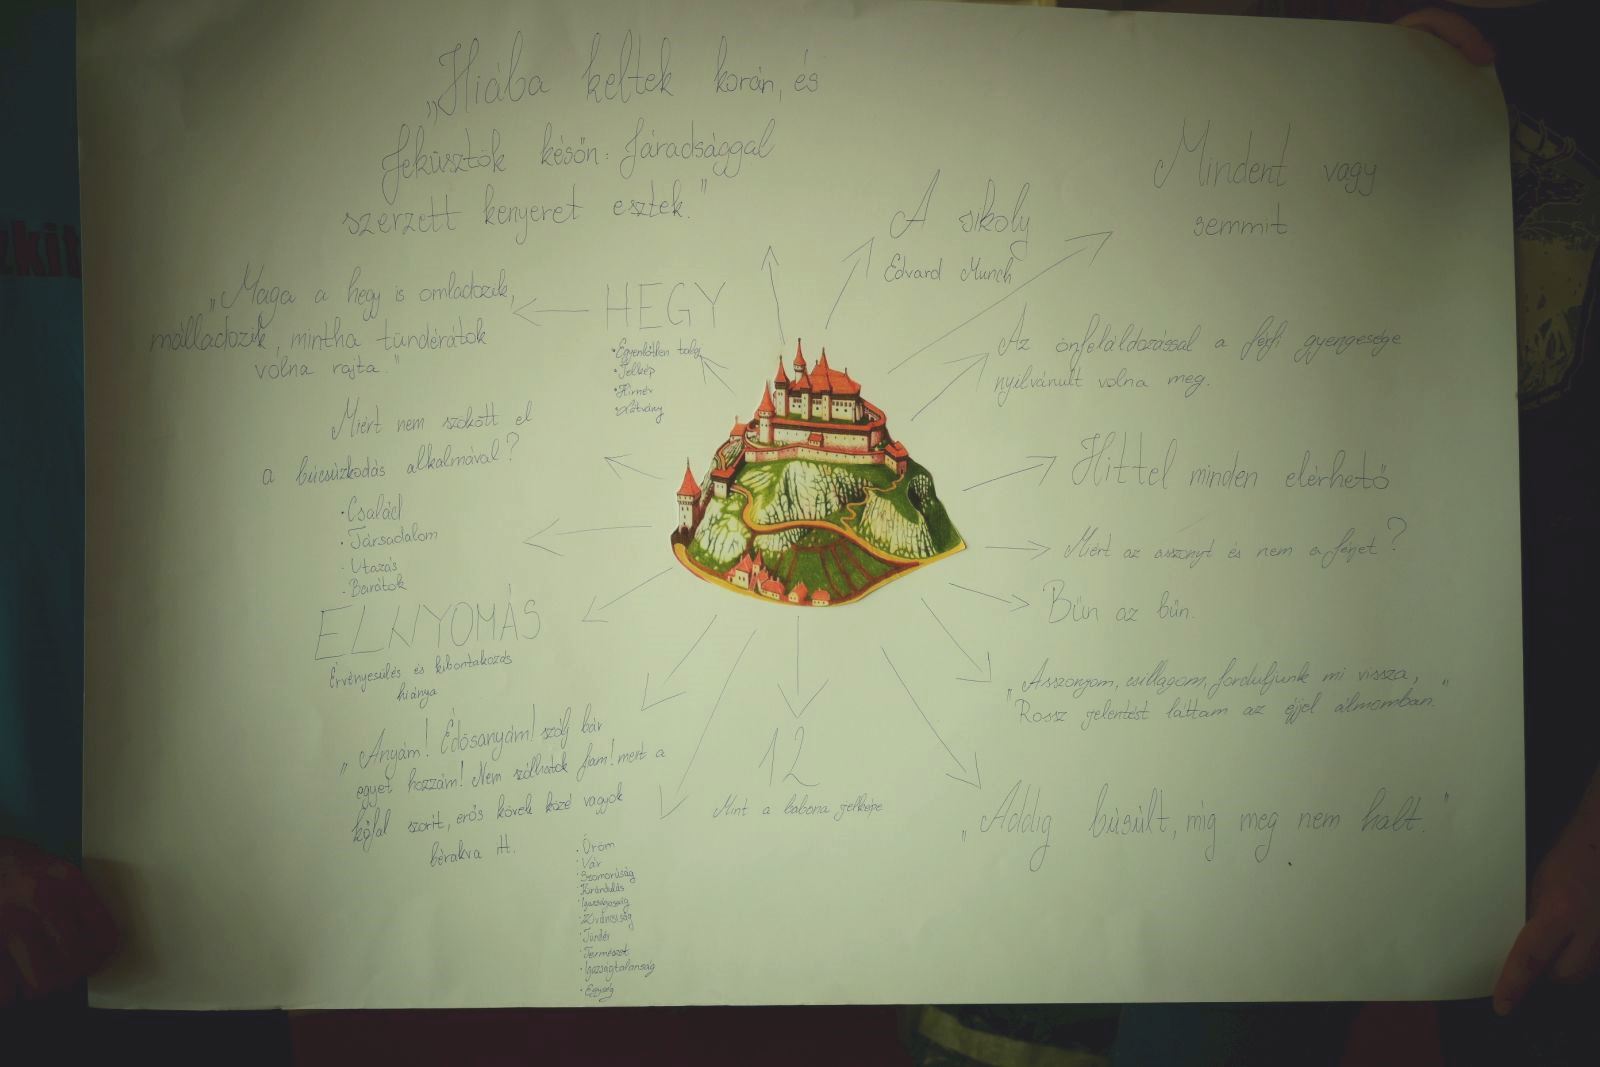 „Hiába keltek korán, és
feküsztök későn: fáradsággal
szerzett kenyeret esztek."
A sikoly
Edvard Munch
Mindent vagy
semmit
„Maga a hegy is omladozik,
málladozik, mintha tündérátok
volna rajta."
HEGY
•Egyenlőtlen talaj
•Jelkép
•Hírnév
•Látvány
Az önfeláldozással a férfi gyengesége
nyilvánult volna meg.
Miért nem szokott el
a búcsúzkodás alkalmával?
•Család
•Társadalom
•Utazás
•Barátok
Hittel minden elérhető
Miért az asszonyt és nem a férjet?
Bűn az bűn.
ELNYOMÁS
Érvényesülés és kibontakozás
hiánya
„Asszonyom, csillagom, forduljunk mi vissza,
Rossz jelentést láttam az éjjel álmomban."
„Anyám! Édösanyám! szólj bár
egyet hozzám! Nem szólhatok fiam! mert a
kőfal szorit, erős kövek közé vagyok
bérakva itt.
12
Mint a babona jelképe
„Addig búsúlt, míg meg nem halt."
•Öröm
•Vár
•Szomorúság
•Kirándulás
•Igazságosság
•Kíváncsiság
•Tündér
•Természet
•Igazságtalanság
•Egység
zkit